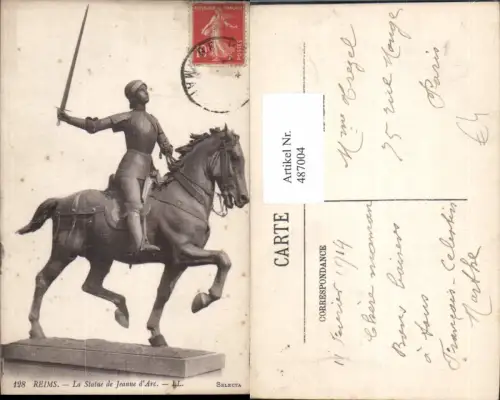 128 REIMS. — La Statue de Jeanne d'Arc. — LL.
SELECTA
Artikel Nr.
487004
CARTE
CORRESPONDANCE
Mme
75 rue Monge
Paris
Chère maman
Bons baisers
à tous
François - Célestin
Marthe